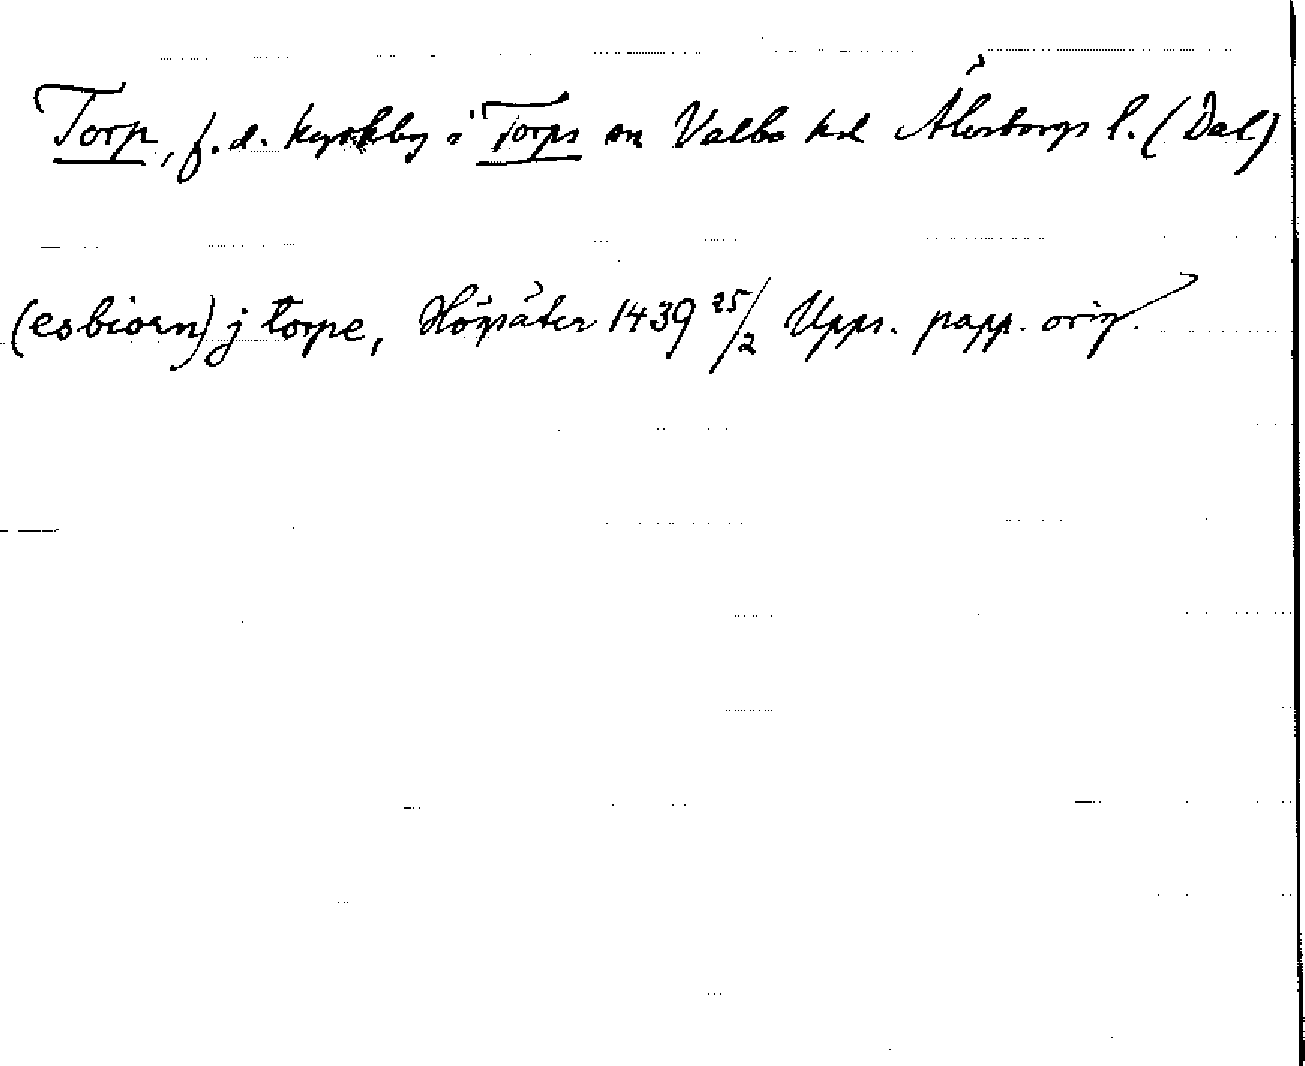 Torp, f.d. kyrkby i Torps sn Valbo hd Älvsborgs l. (Dal)
(esbiorn) j torpe, Högsäter 1439 25/2 Upps. papp. orig.